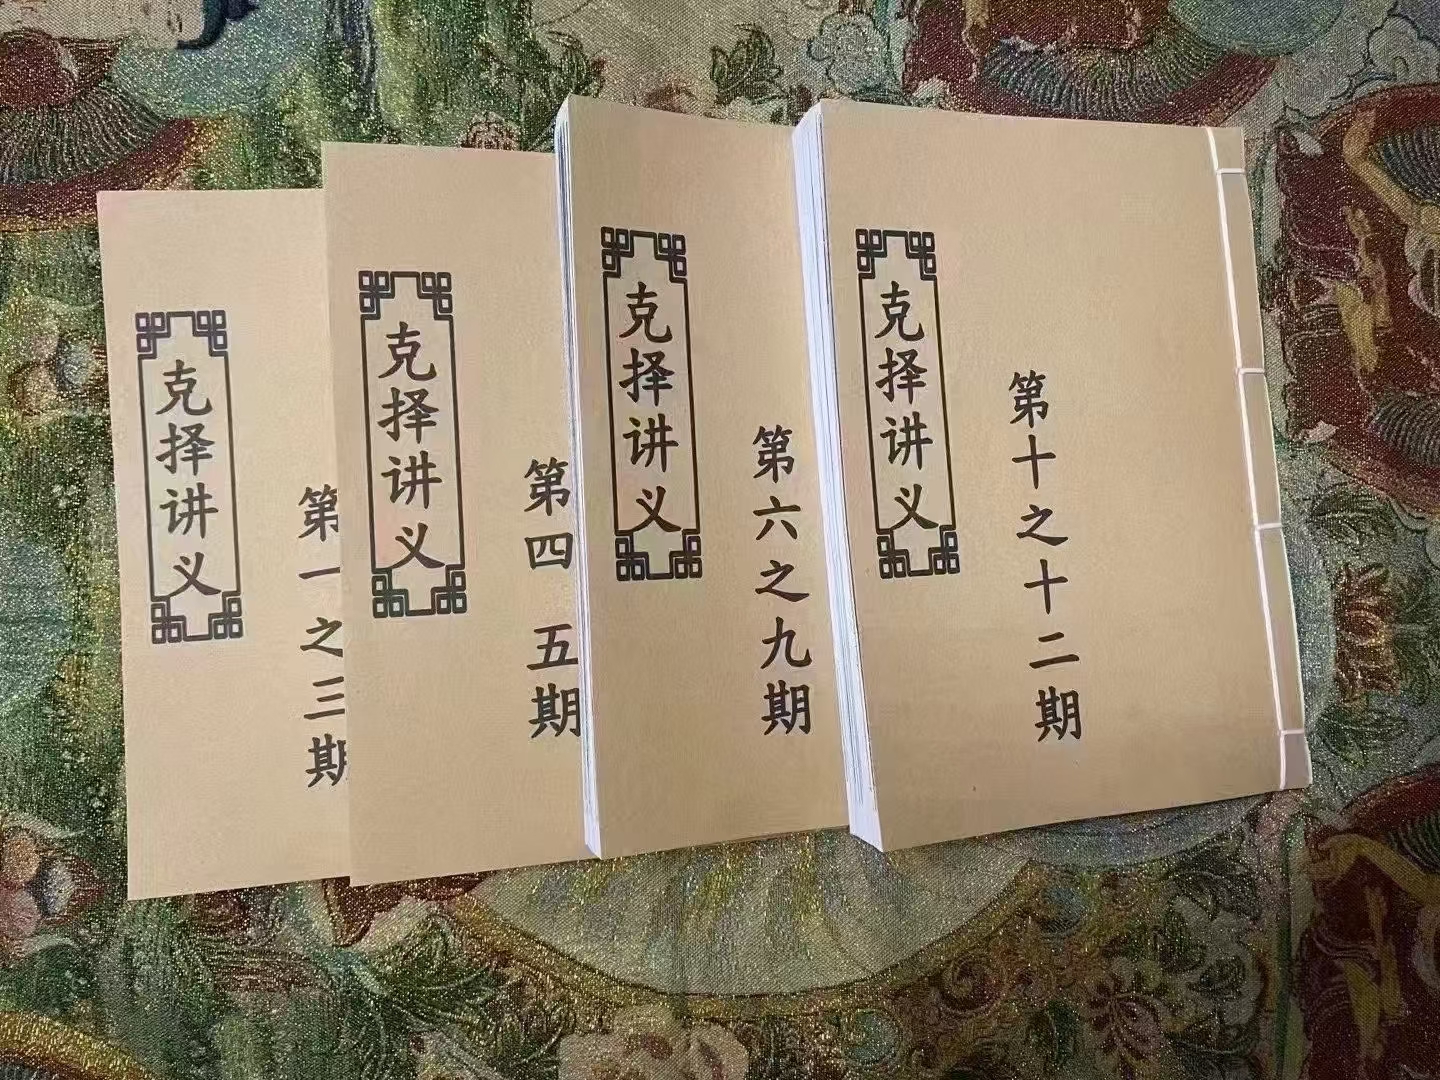 克择讲义
第一之三期
克择讲义
第四 五期
克择讲义
第六之九期
克择讲义
第十之十二期